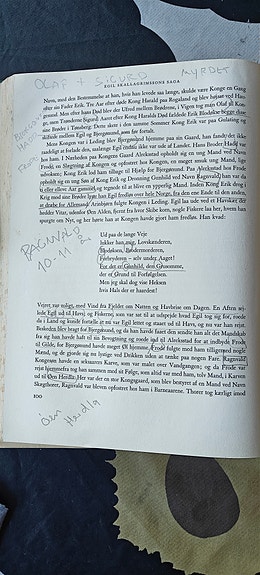 OLAF + SIGURD MYRDET
EGIL SKALLAGRIMSSONS SAGA
Navn, med den Bestemmelse at han, hvis han levede saa længe, skulde være Konge en Gang
efter sin Fader Erik. Tre Aar efter døde Kong Harald paa Rogaland og blev højsat ved Hau-
gesund. Men efter hans Død blev der Ufred mellem Brødrene,
me, men Trønderne Sigurd. Aaret efter Kong Haralds Død fældede Erik Blodøkse begge disse
sine Brødre i Tønsberg. Dette skete i den samme Sommer Kong Erik var paa Gulating og
skiftede mellem Egil og Bjergønund, som før fortalt.
Mens Kongen var i Leding blev Bjergønund hjemme paa sin Gaard, han fandt det ikke
raadeligt at forlade den, saalænge Egil endnu ikke var ude af Landet. Hans Broder Hadd var
hos ham. I Nærheden paa Kongens Gaard Alrekstad opholdt sig en ung Mand ved Navn
Frode, en Slægtning af Kongen og opfostret hos Kongen, en meget smuk ung Mand, lige
udvokset; Kong Erik lod ham tilbage til Hjælp for Bjergønund. Paa Alrekstad hos Frode
opholdt sig en ung Søn af Kong Erik og Dronning Gunhild ved Navn Ragnvald; han var da
ti eller elleve Aar gammel og tegnede til at blive en ypperlig Mand. Inden Kong Erik drog i
Krig mod sine Brødre lyste han Egil fredløs over hele Norge, fra den ene Ende til den anden,
at dræbe for Allemand. Arinbjørn fulgte Kongen i Leding. Egil laa ude ved et Havskær, der
hedder Vitar, udenfor Øen Alden, fjernt fra hvor Skibe kom, nogle Fiskere laa her, hvem han
spurgte om Nyt, og her hørte han at Kongen havde gjort ham fredløs. Han kvad:
RAGNVALD
10-11 år
Ud paa de lange Veje
lukker han mig, Lovskænderen,
Blodøksen, Brødermorderen,
For det er Gunhild, den Grumme,
der er Grund til Forfølgelsen.
Men jeg skal dog vise Heksen
hvis Hals der er haardest!
Vejret var roligt, med Vind fra Fjeldet om Natten og Havbrise om Dagen. En Aften sej-
lede Egil ud til Havs; og Fiskerne, som var sat til at udspejde hvad Egil tog sig for, roede
da i Land og kunde fortælle at nu var Egil lettet og staaet ud til Havs, og nu var han rejst.
Beskeden blev bragt for Bjergønund, og da han havde faaet den sendte han alt det Mandskab
fra sig han havde haft til sin Bevogtning og roede ind til Alrekstad for at indbyde Frode
til Gilde, for Bjergønund havde meget Øl hjemme. Frode fulgte med ham tilligemed nogle
Mænd, og de gjorde sig nu lystige ved Drikken uden at tænke paa nogen Fare. Ragnvald
Kongesøn havde en seksaarers Karve, som var malet over Vandgangen; og da Frode var
rejst hjemmefra tog han sammen med sit Følge, som altid var med ham, tolv Mand, i Karven
ud til Øen Herdla. Her var der en stor Kongsgaard, som blev bestyret af en Mand ved Navn
Skægthorer, Ragnvald var bleven opfostret hos ham i Barneaarene. Thorer tog kærligt imod
100
Øen
Herdla